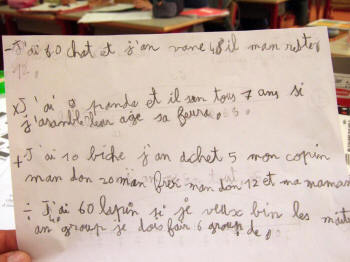 - J'ai 60 chat et j'an vane 48 il man reste
12.
x J'ai 9 panda et il son tous 7 ans si
j'asamble leur age sa feura. 63.
+ J'ai 10 biche j'an achet 5 mon copin
man don 20 man frer man don 12 et ma maman
÷ J'ai 60 lapin si je veux bin les maitre
an group je dois fair 6 group de